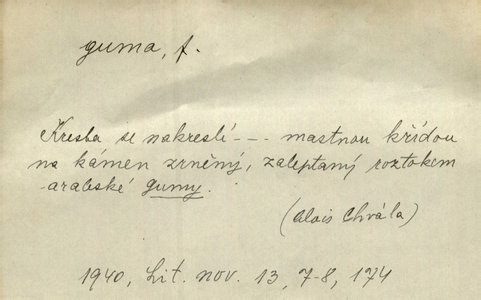 guma, f.
Kresba se nakreslí --- mastnou křídou
na kámen zrněný, zaleptaný roztokem
arabské gumy.
(Alois Chvála)
1940, Lit. nov. 13, 7-8, 174